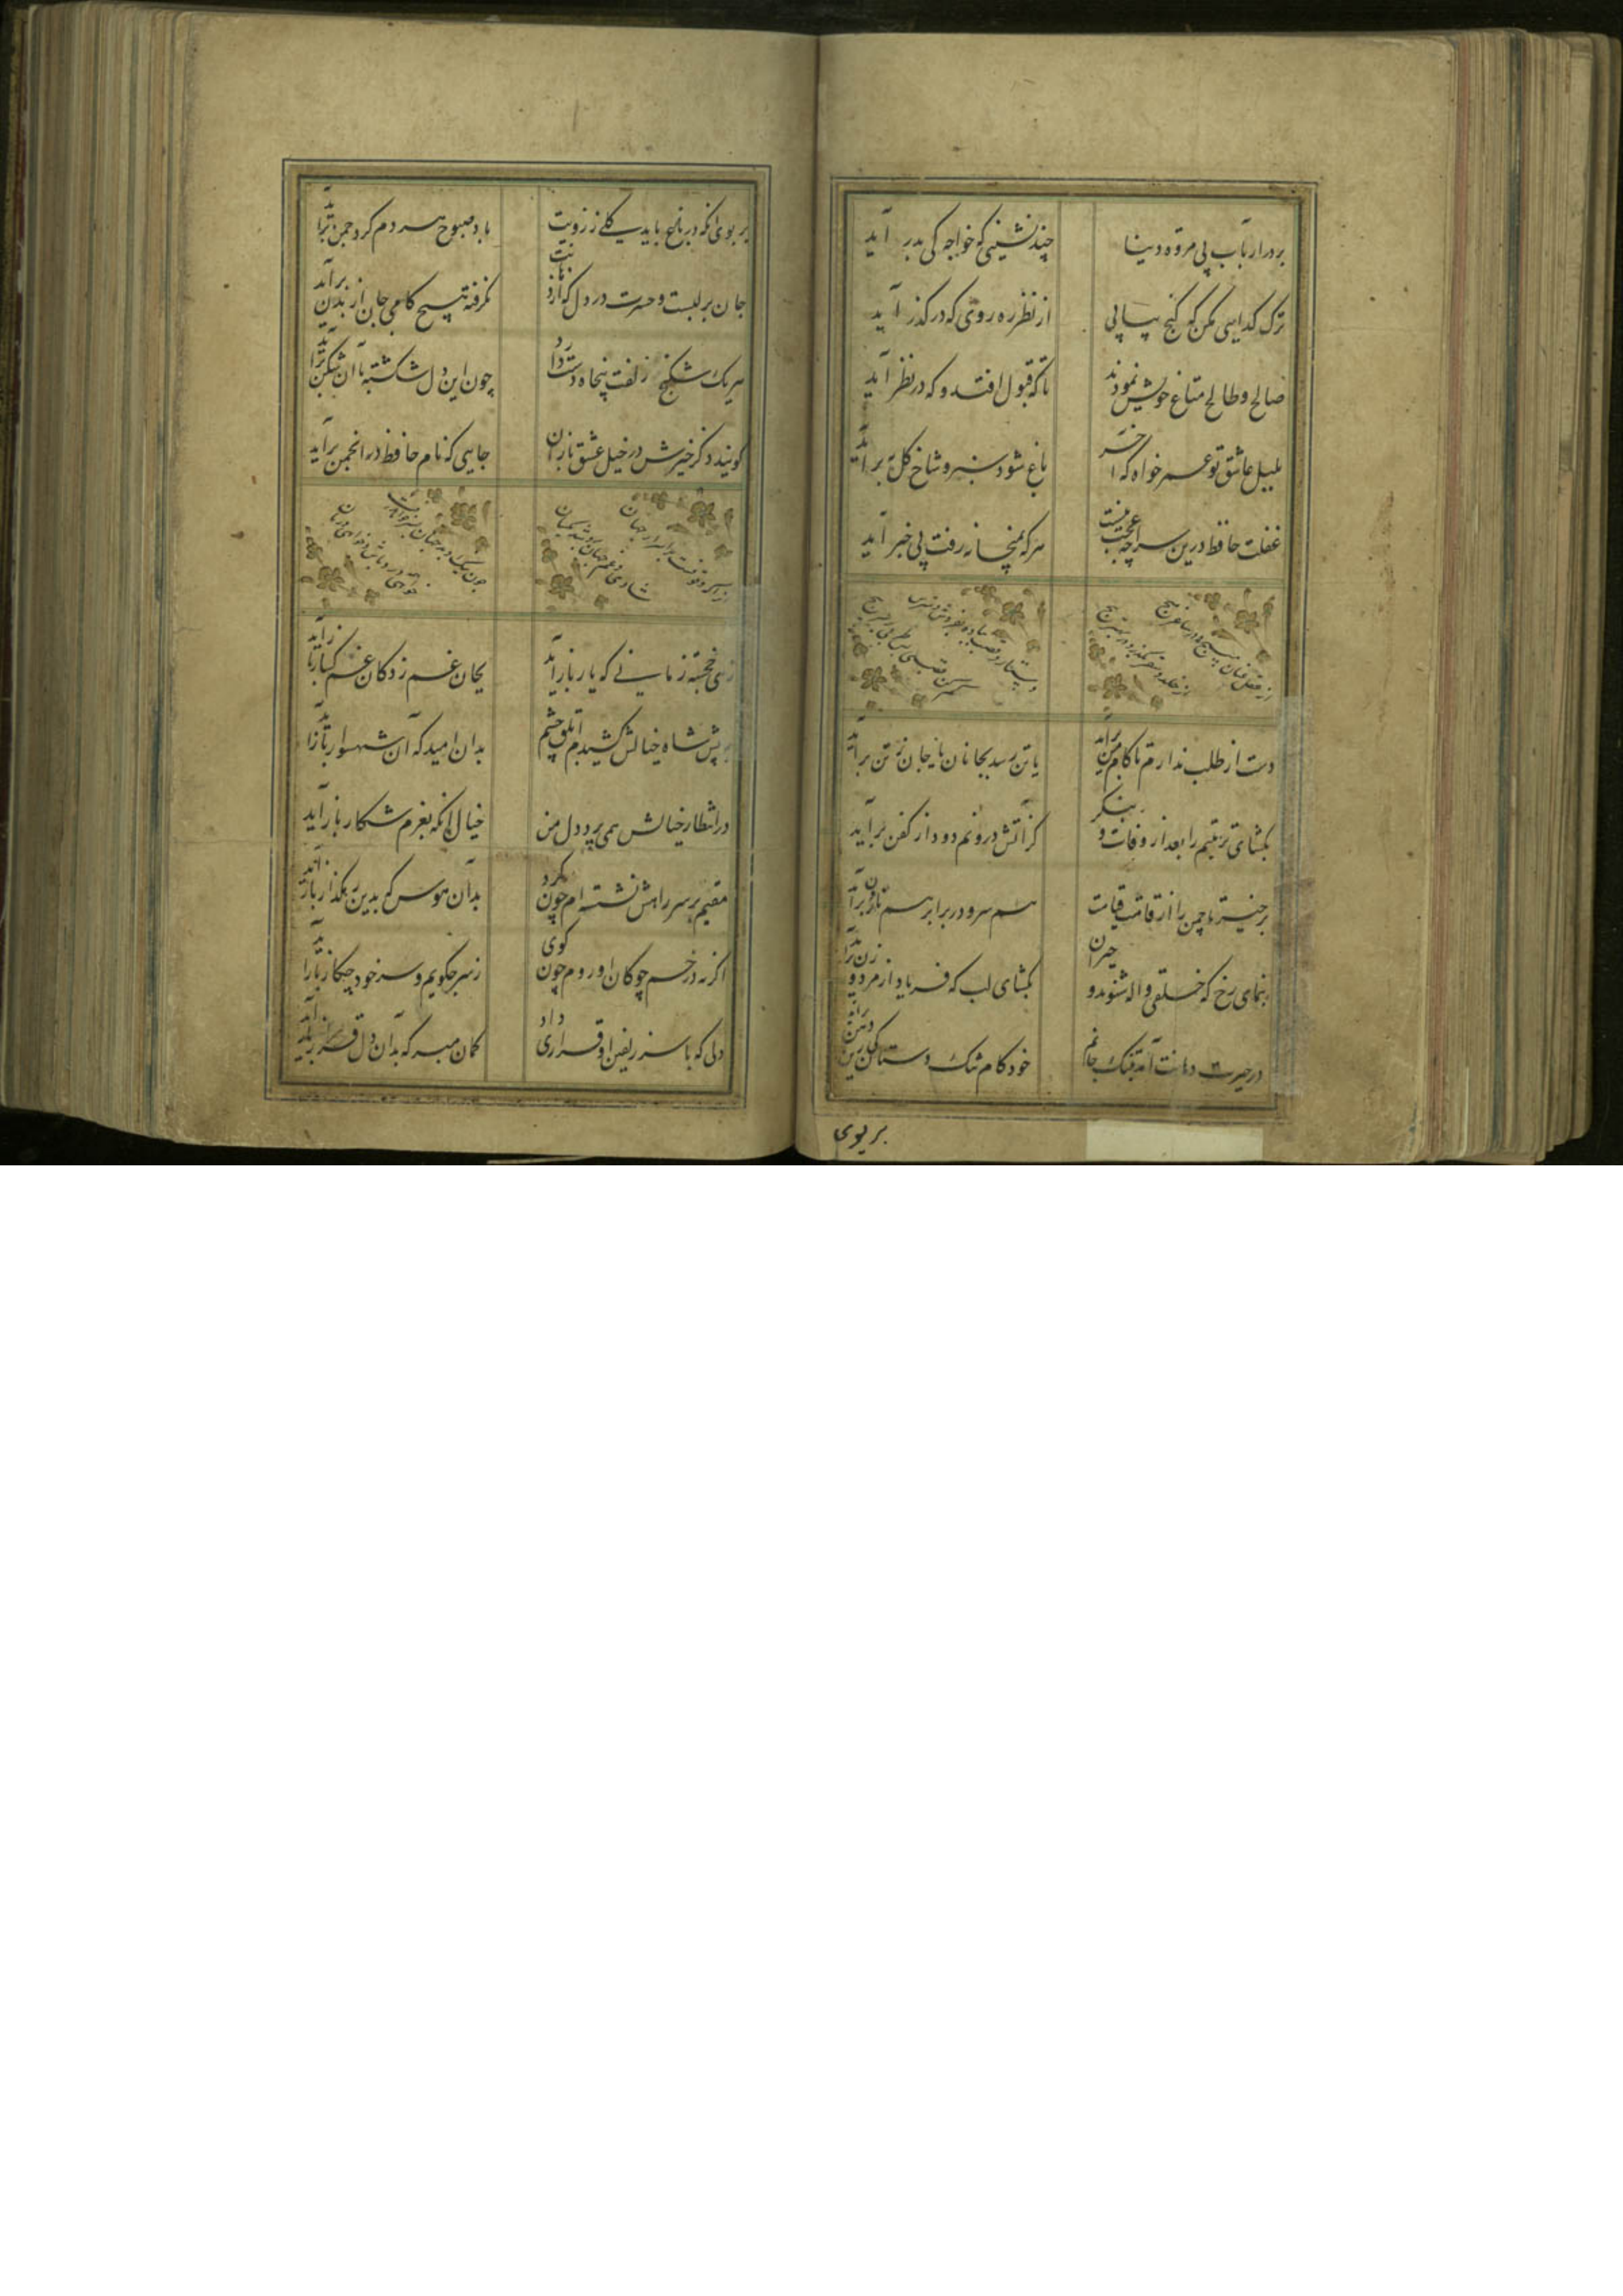 بردر ارباب بی مروه دنیا چند نشینی که خواجه کی بدر آید
ترک کدایی مکن که کنج بیابی از نظر ره روی که در کذر آید
صالح و طالح متاع خویش نمودند تا که قبول افتد و که در نظر آید
بلبل عاشق تو عمر خواه که آخر باغ شود سبز و شاخ کل ببر آید
غفلت حافظ درین سراچه عجب نیست هر که بمیخانه رفت بی خبر آید
دست از طلب ندارم تا کام من برآید یا تن رسد بجانان یا جان ز تن برآید
بکشای تربتم را بعد از وفات و بنکر کز آتش درونم دود از کفن برآید
برخیز تا چمن را از قامت قیامت هم سرو در بر آید هم نارون برآید
بنمای رخ که خلقی واله شوند و حیران بکشای لب که فریاد از مرد و زن برآید
در حیرت دهانت آمد بتنک جانم خود کام تنک دستان کی زین دهن برآید
بر بوی
بر بوی آنکه در باغ یابد کلی ز رویت باد صبوح هر دم کرد چمن برآید
جان بر لبست و حسرت در دل که از لبانت نکرفته هیچ کامی جان از بدن برآید
هر یک شکنج زلفت پنجاه دست دارد چون این دل شکسته با آن شکن برآید
کویند ذکر خیرش در خیل عشق بازان جایی که نام حافظ در انجمن برآید
زهی خجسته زمانی که یار باز آید بکام غم زدکان غم کسار باز آید
به پیش شاه خیالش کشیدم ابلق چشم بدان امید که آن شهسوار باز آید
در انتظار خیالش همی پرد دل من خیال آنکه بعزم شکار باز آید
مقیم بر سر راهش نشسته ام چون کرد بدان هوس که بدین رهکذار باز آید
اکر نه در خم چوکان او روم چون کوی ز سر چکویم و سر خود چکار باز آید
دلی که با سر زلفین او قراری داد کمان مبر که بدان دل قرار باز آید